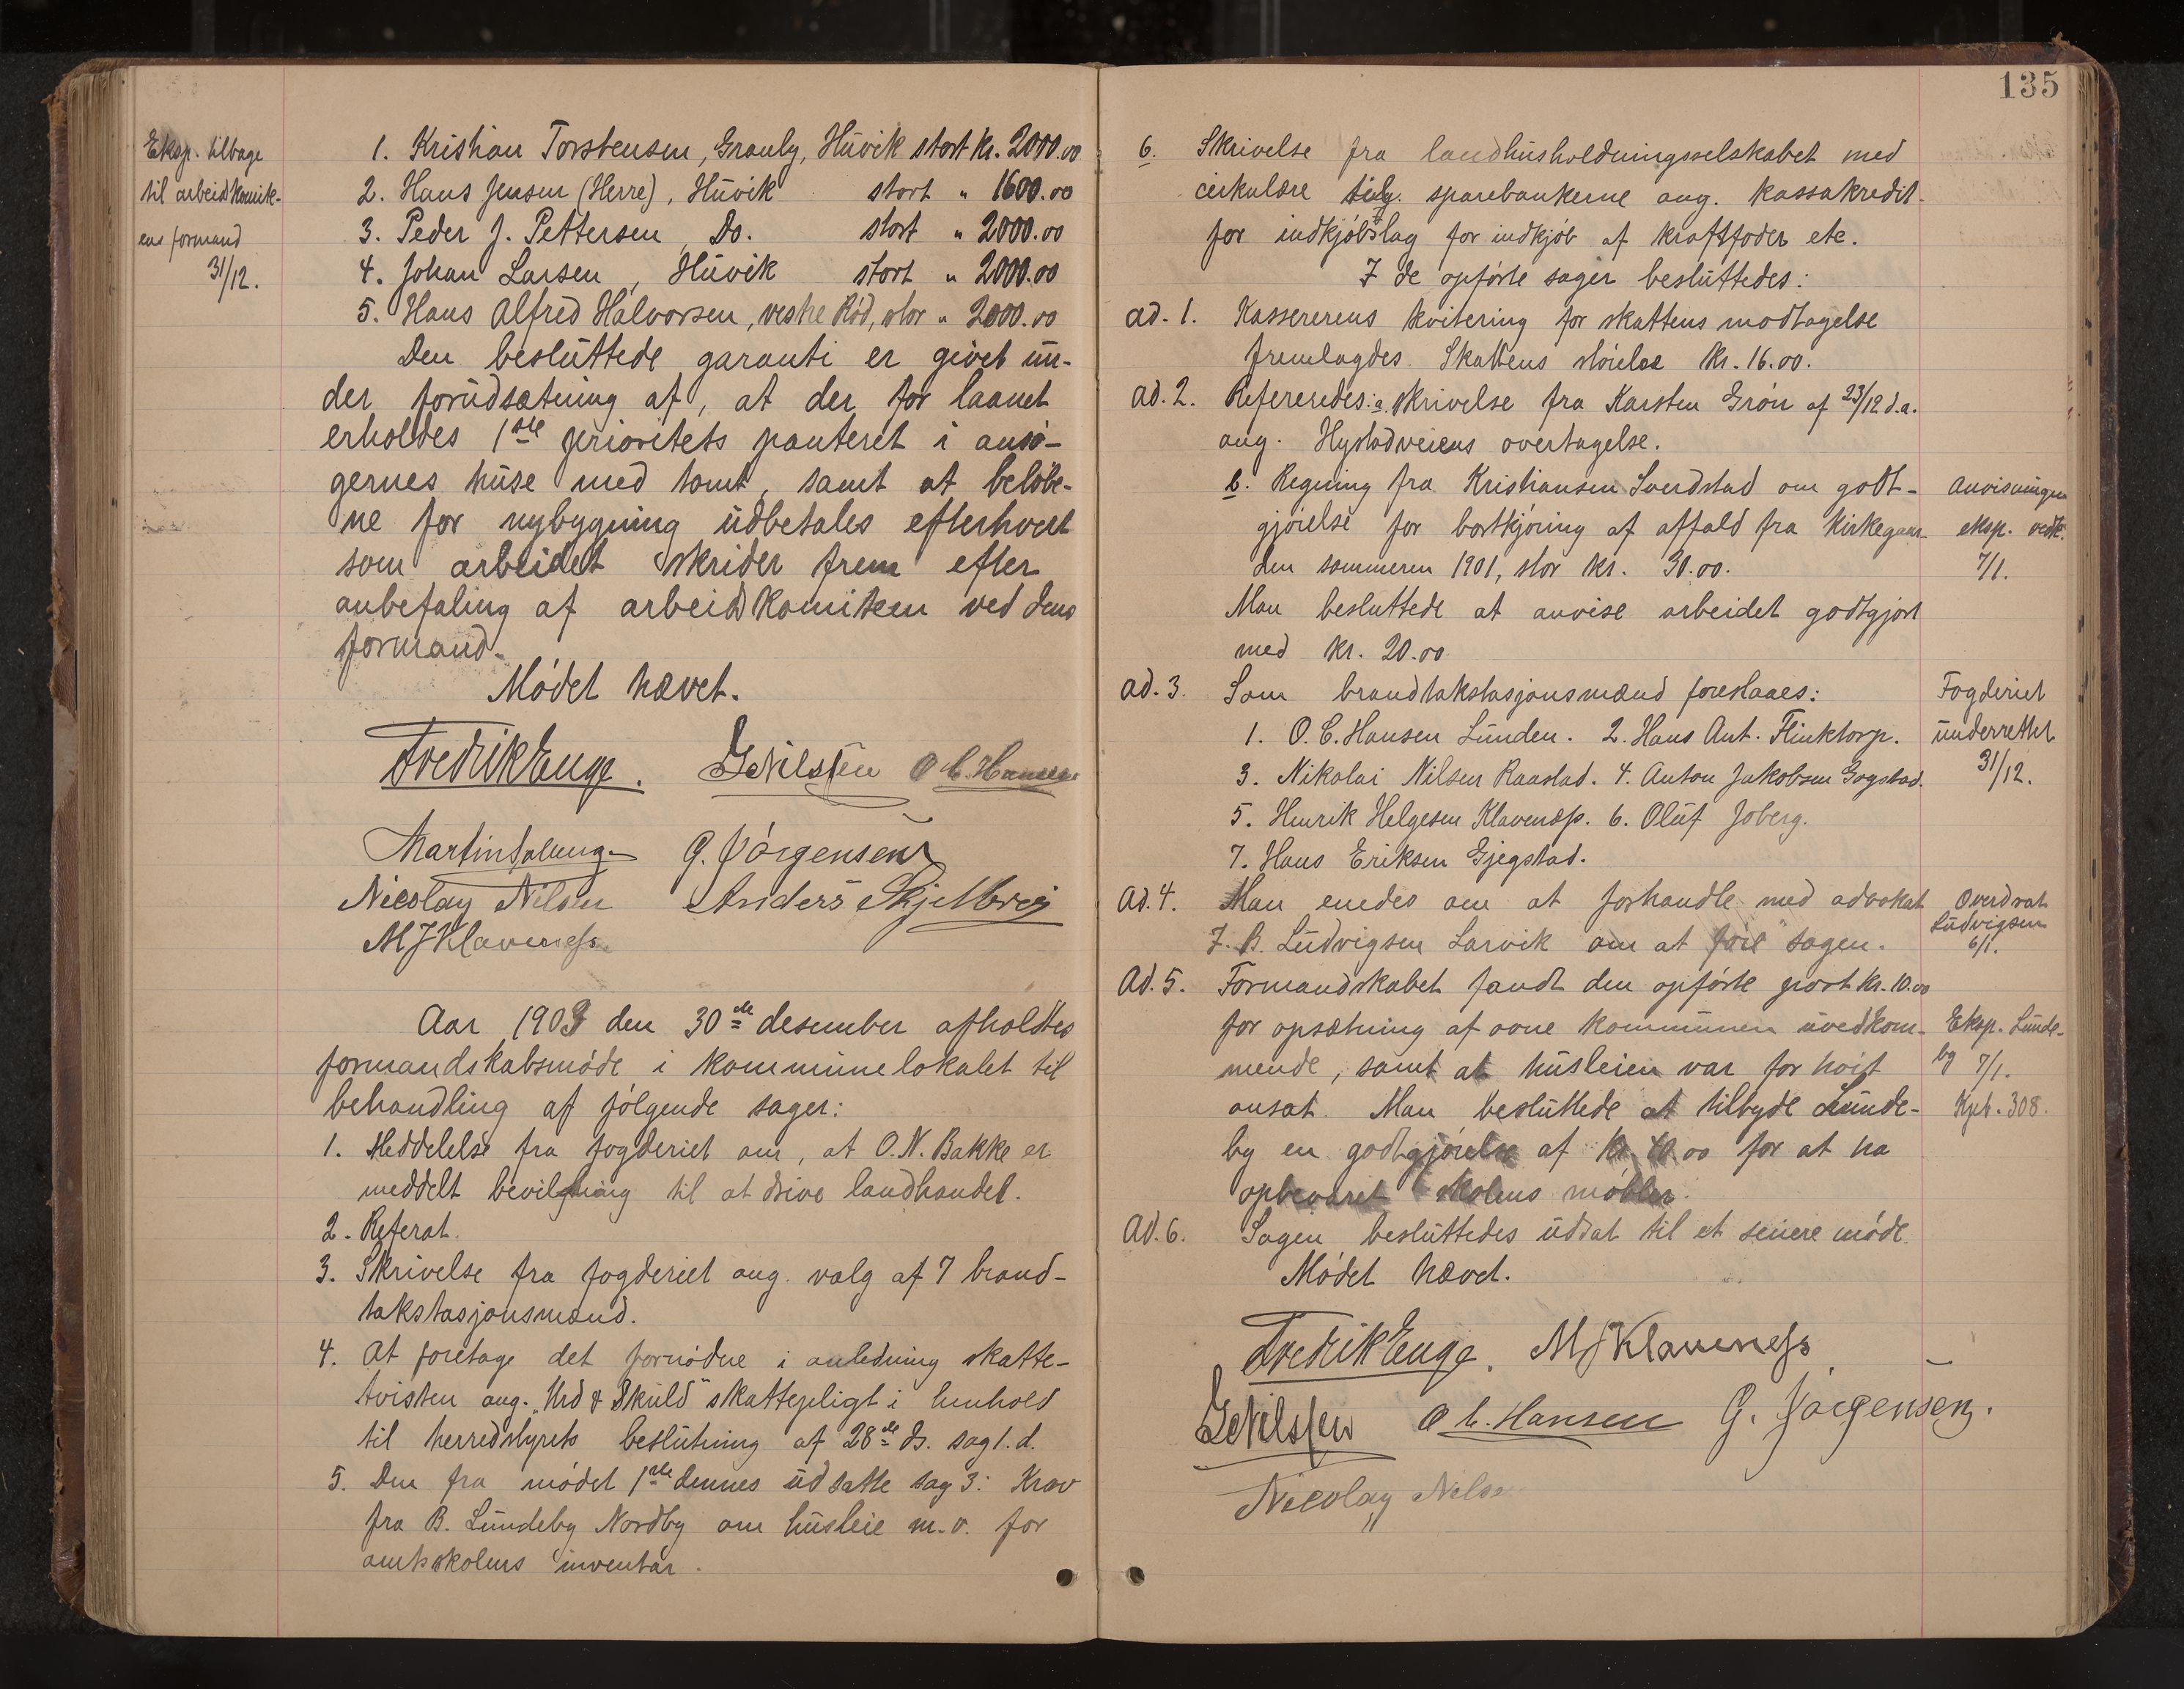 Eksp. tilbage
til arbeidkomite-
ens formand
31/12.
1. Kristian Torstensen, Granly, Huvik stort kr. 2000.00
2. Hans Jensen (Herre), Huvik stort " 1600.00
3. Peder J. Pettersen, Do. stort " 2000.00
4. Johan Larsen, Huvik stort " 2000.00
5. Hans Alfred Halvorsen, vestre Rød, stor " 2000.00
Den besluttede garanti er givet un-
der forudsætning af, at der for laanet
erholdes 1ste prioritets panteret i ansø-
gernes huse med tomt, samt at beløbe-
ne for nybygning udbetales efterhvert
som arbeidet skrider frem efter
anbefaling af arbeidkomiteen ved dens
formand.
Mødet hævet.
Fredrik Enge. GNilssen O C. Hansen
Martin G. Jørgensen
Nicolay Nilsen Anders Skjelbrei
MJKlaveness
Aar 1903 den 30de desember afholdtes
formandskabsmøde i kommunelokalet til
behandling af følgende sager:
1. Meddelelse fra fogderiet om, at O.N. Bakke er
meddelt bevilgning til at drive landhandel.
2. Referat.
3. Skrivelse fra fogderiet ang. valg af 7 brand-
takstasjonsmænd.
4. At foretage det fornødne i anledning skatte-
tvisten ang. "Urd & Skuld" skattepligt i henhold
til herredstyrets beslutning af 28de ds. sag 1.d.
5. Den fra mødet 1ste dennes udsatte sag 3: Krav
fra B. Lundeby Nordby om husleie m.v. for
amtsskolens inventar.
135
6. Skrivelse fra landhusholdningsselskabet med
cirkulære sparebankerne ang. kassakredit
for indkjøbslag for indkjøb af kraftfoder etc.
I de opførte sager besluttedes:
ad. 1. Kassererens kvitering for skattens modtagelse
fremlagdes. Skattens størelse kr. 16.00.
ad. 2. Refereredes: a. skrivelse fra Karsten Grøn af 23/12 d.a.
ang. Hystadveiens overtagelse.
b. Regning fra Kristiansen Sverdstad om godt-
gjørelse for bortkjøring af affald fra kirkegaar-
den sommeren 1901, stor kr. 30.00.
Man besluttede at anvise arbeidet godtgjort
med kr. 20.00
Anvisningen
eksp. vedk.
7/1.
ad. 3. Som brandtakstasjonsmænd foreslaaes:
1. O. C. Hansen Lunden. 2. Hans Ant. Flinktorp.
3. Nikolai Nilsen Raastad. 4. Anton Jakobsen Gogstad.
5. Henrik Helgesen Klavenæs. 6. Oluf Joberg.
7. Hans Eriksen Gjegstad.
Fogderiet
underrettet
31/12.
Ad. 4. Man enedes om at forhandle med advokat
J. B. Ludvigsen Larvik om at føre sagen.
Overdrat
Ludvigsen
6/1.
Ad. 5. Formandskabet fandt den opførte post kr. 10.00
for opsætning af ovne kommunen uvedkom-
mende, samt at husleien var for høit
ansat. Man besluttede at tilbyde Lunde-
by en godtgjørelse af kr. 40.00 for at ha
opbevaret skolens møbler.
Eksp. Lunde-
by 7/1.
Kpb. 308.
Ad. 6. Sagen besluttedes udsat til et senere møde.
Mødet hævet.
Fredrik Enge. MJKlaveness
GNilssen O C. Hansen G. Jørgensen.
Nicolay Nilsen